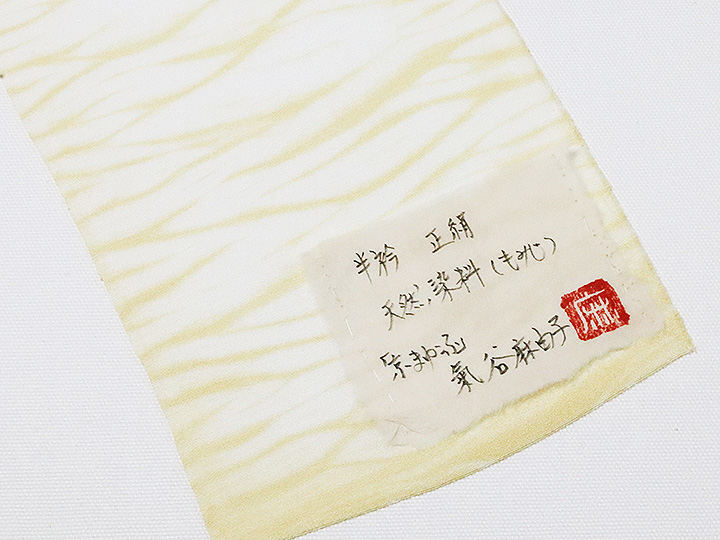 半衿　正絹
天然染料（もみじ）
氣谷麻由子
麻